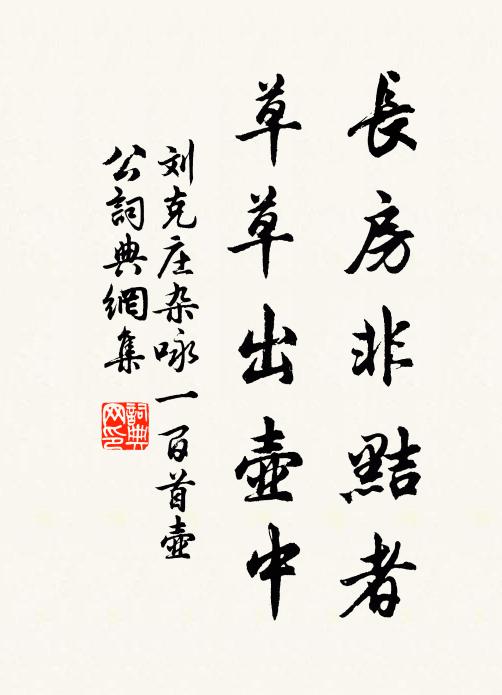 長房非黠者
草草出壺中
刘克庄杂咏一百首壺
公詞典網集
詞典
网印